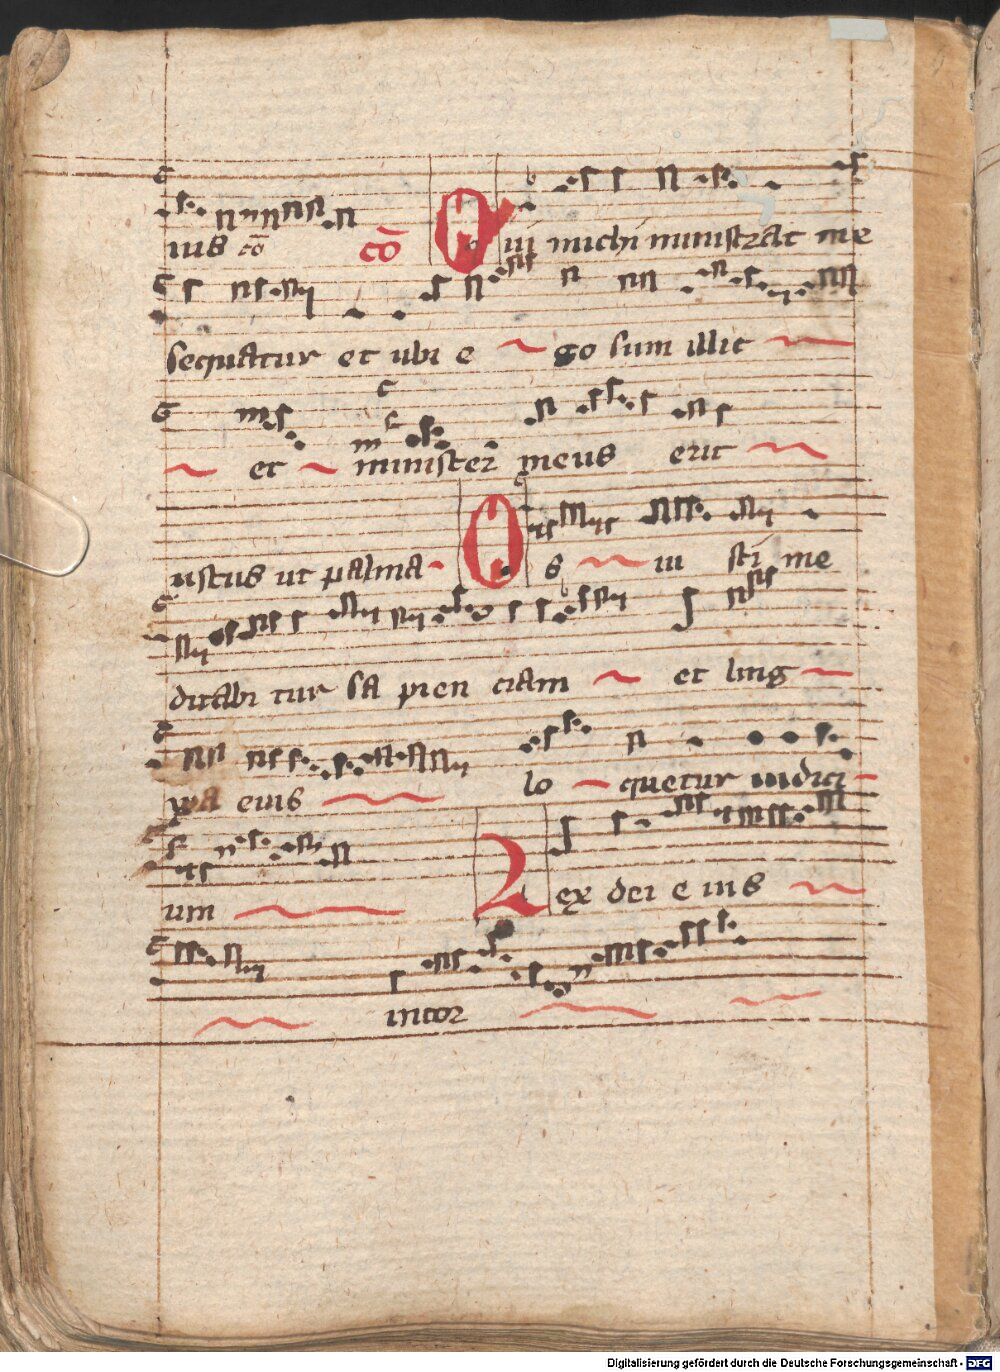 ius cō cō Qui michi ministrat me
sequatur et ubi e go sum illic
et minister meus erit
iustus ut palma Os iu sti me
ditabi tur sa pien ciam et ling
wa eius lo quetur iudici
um Lex dei e ius
in cor
Digitalisierung gefördert durch die Deutsche Forschungsgemeinschaft - DFG